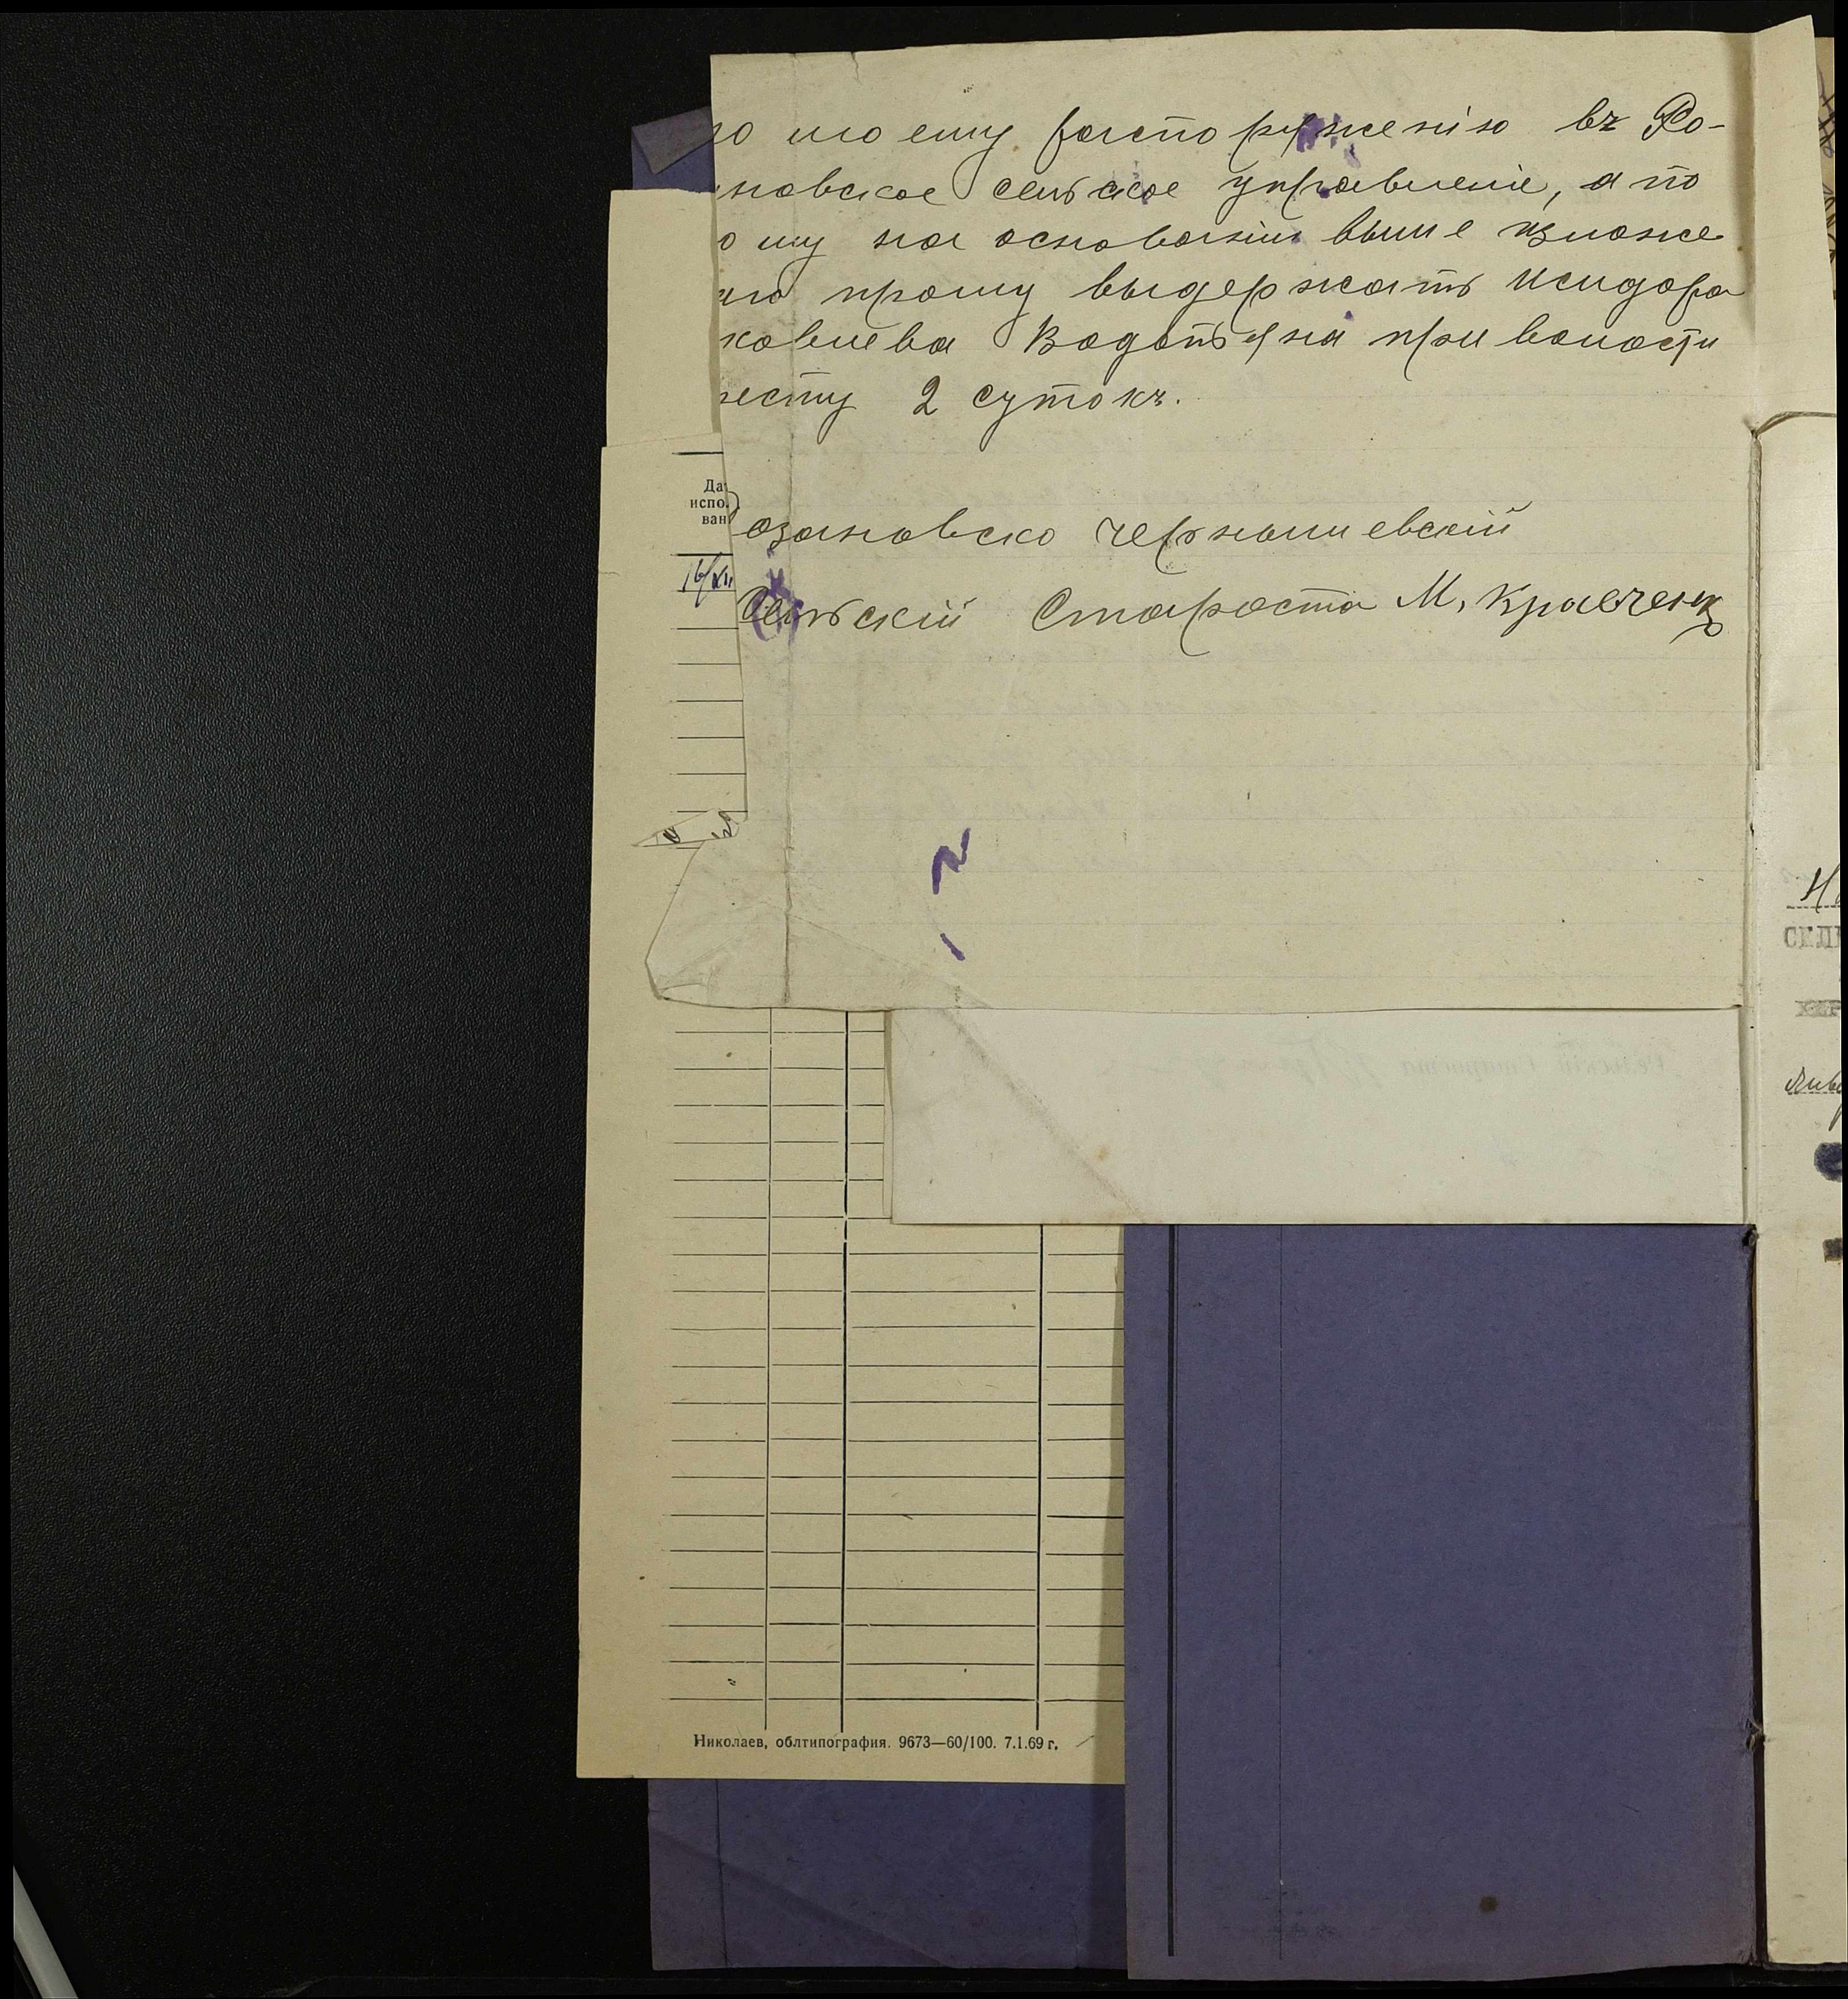 по моему распоряженію въ Ро-
новское сельское управленіе, а по
ому на основаніи выше изложе
прошу выдержать Исидора
ковлева Водотяна при волости
ресту 2 сутокъ.
озановско чернышевскій
Сельскій Староста М. Кравченко
Да
испо.
ван
16/XII
Николаев, облтипография. 9673—60/100. 7.1.69 г.